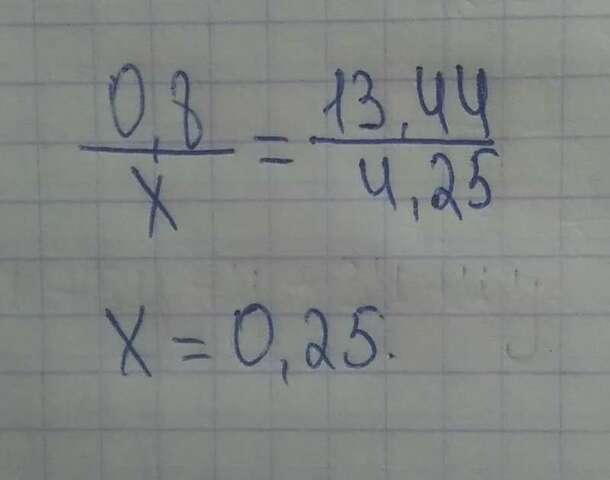 0,8 / x = 13,44 / 4,25
x = 0,25.